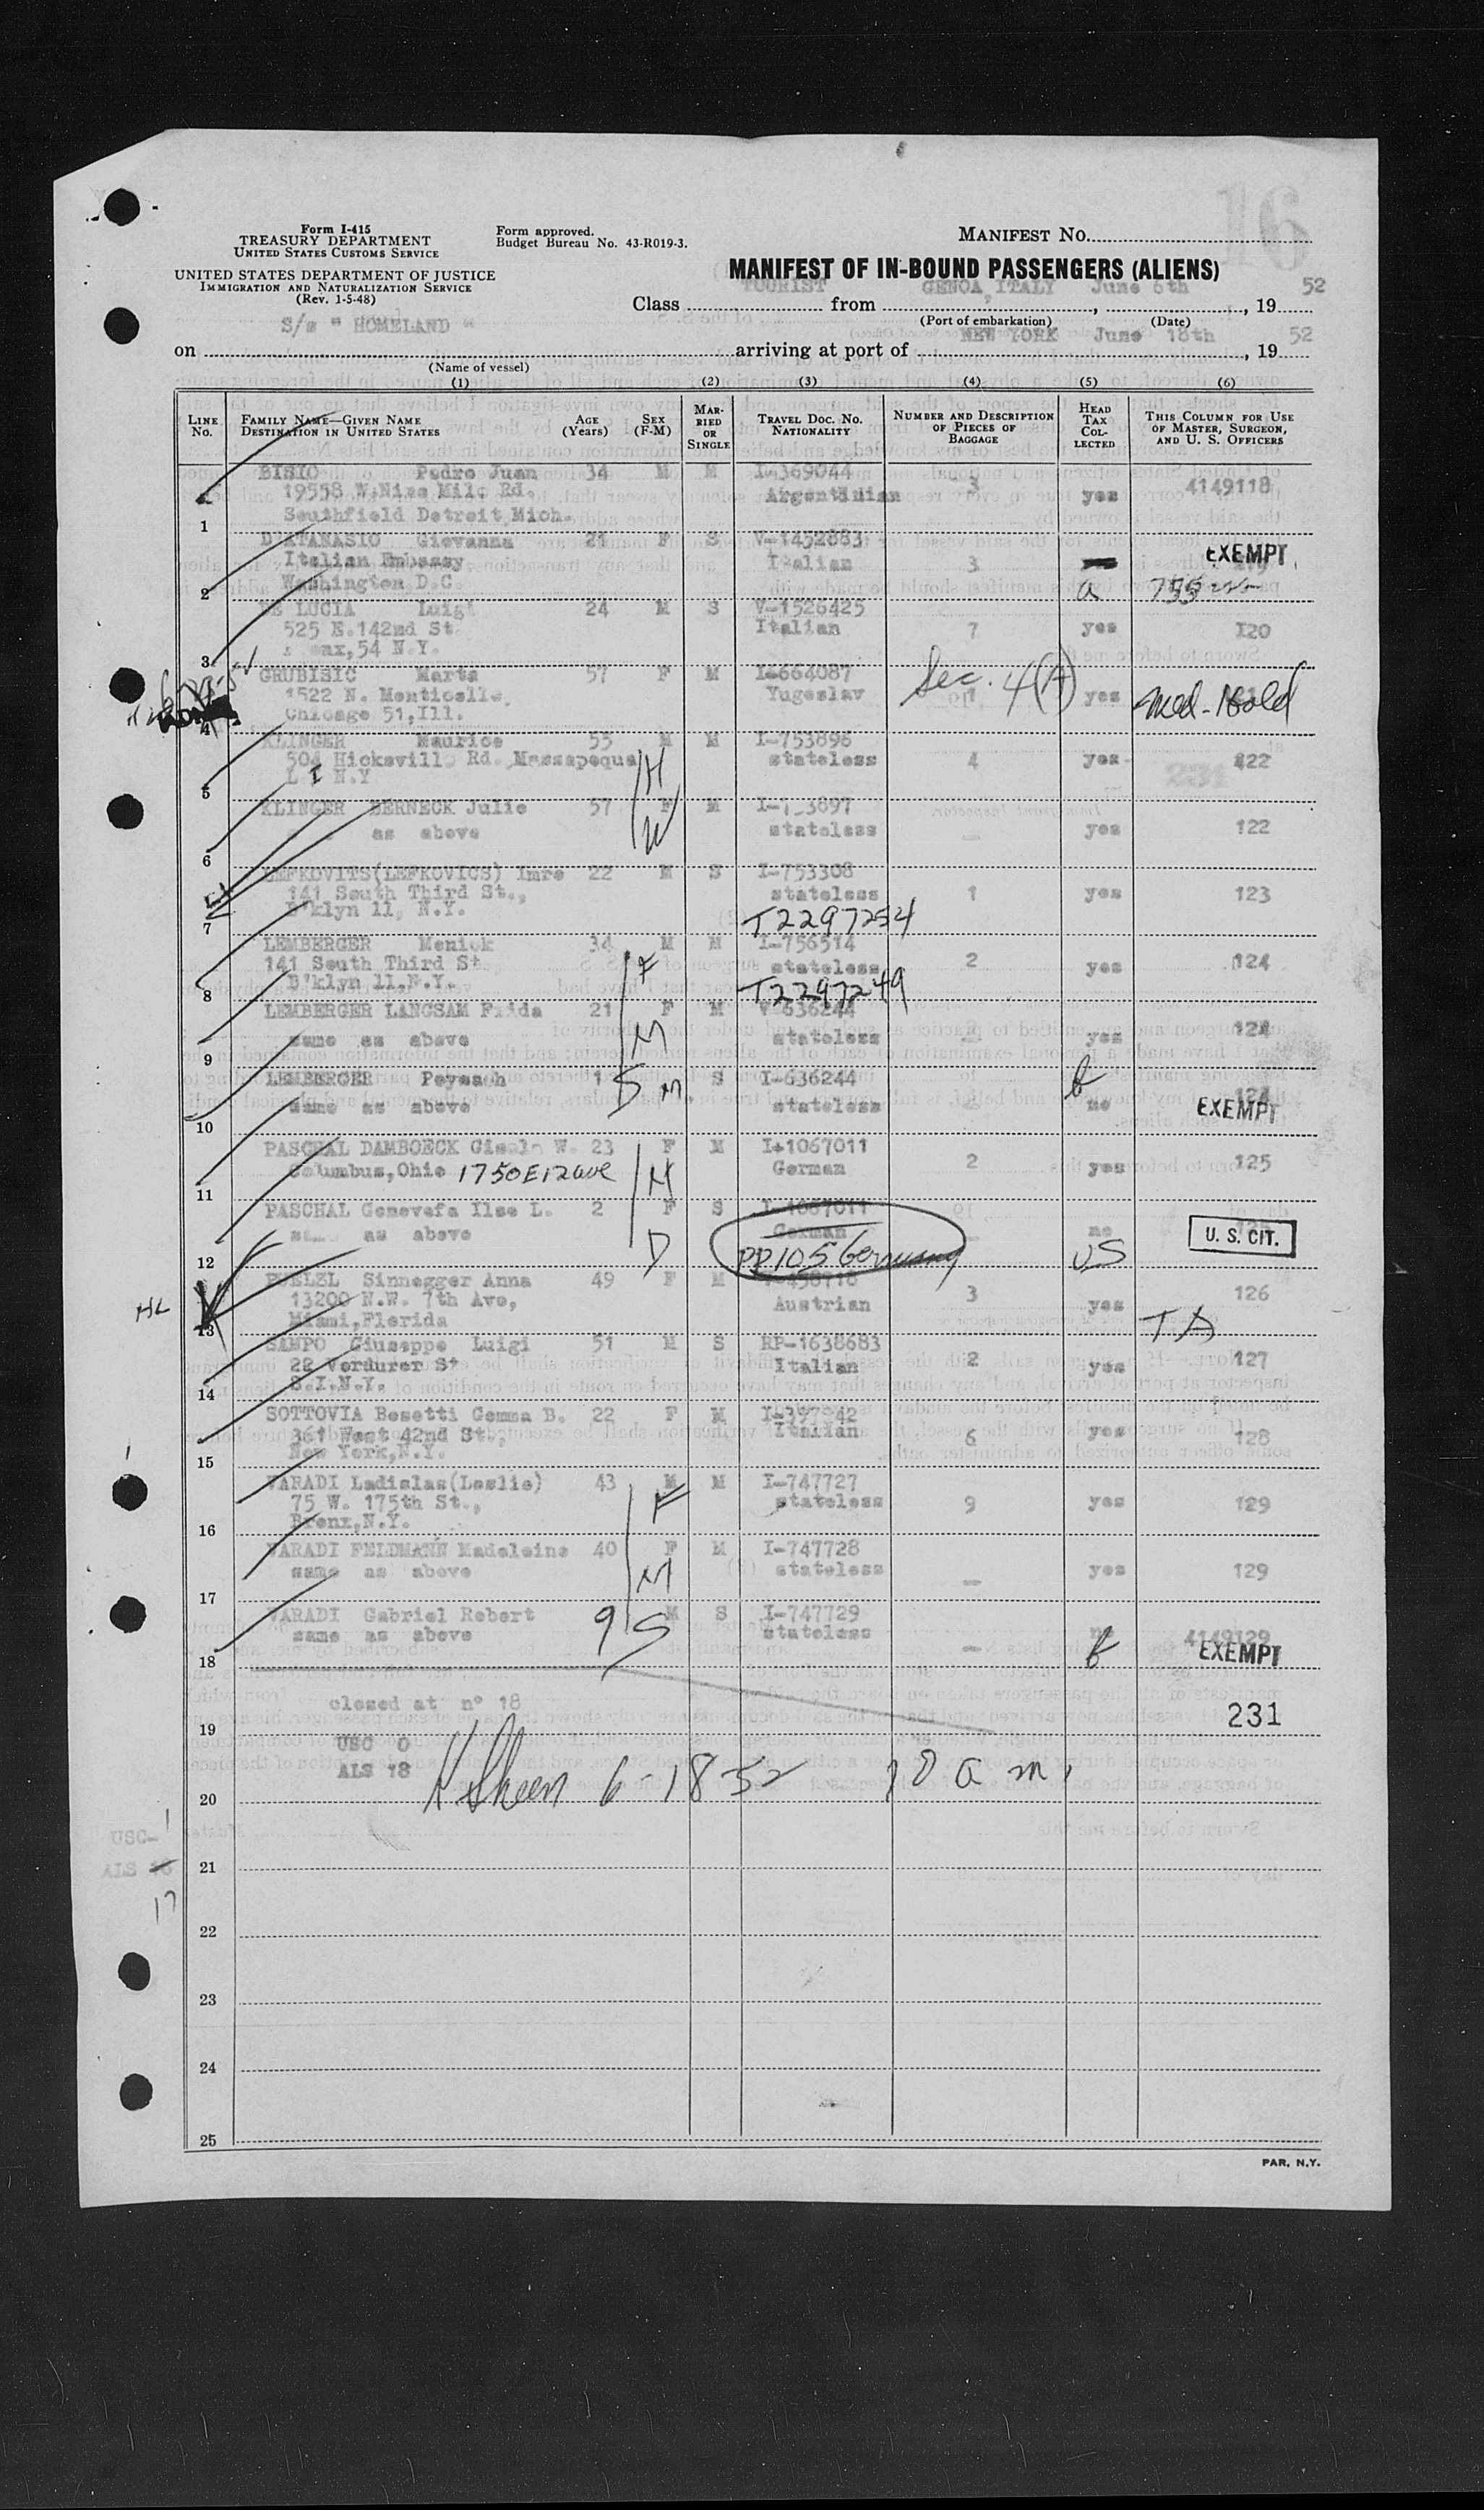 16
Form I-415
TREASURY DEPARTMENT
UNITED STATES CUSTOMS SERVICE
UNITED STATES DEPARTMENT OF JUSTICE
IMMIGRATION AND NATURALIZATION SERVICE
(Rev. 1-5-48)
Form approved.
Budget Bureau No. 43-R019-3.
MANIFEST NO.
MANIFEST OF IN-BOUND PASSENGERS (ALIENS)
Class TOURIST from GENOA, ITALY, June 6th, 19 52
(Port of embarkation) (Date)
S/s " HOMELAND "
on arriving at port of NEW YORK June 18th, 19 52
(Name of vessel)
(1) (2) (3) (4) (5) (6)
LINE No. FAMILY NAME—GIVEN NAME DESTINATION IN UNITED STATES AGE (Years) SEX (F-M) MARRIED OR SINGLE TRAVEL DOC. NO. NATIONALITY NUMBER AND DESCRIPTION OF PIECES OF BAGGAGE HEAD TAX COLLECTED THIS COLUMN FOR USE OF MASTER, SURGEON, AND U. S. OFFICERS
BISIO Pedro Juan 34 M M I-369044
19558 W.Nine Mile Rd. Argentinian 3 yes 4149118
1 Southfield Detroit Mich.
D'ATANASIO Giovanna 21 F S V-1452883
Italian Embassy Italian 3 EXEMPT
2 Washington D.C. a
DE LUCIA Luigi 24 M S V-1526425
525 E.142nd St Italian 7 yes 120
3 54 N.Y.
GRUBISIC Marta 57 F M I-664087 Sec. 4(A)
1522 N. Monticello, Yugoslav 1 yes Med-Hold
4 Chicago 51,Ill.
KLINGER Maurice 55 M M I-753896
504 Hicksville Rd. Massapequa H stateless 4 yes 122
5 L I N.Y
KLINGER BERNECK Julie 57 F M I-753897
as above W stateless — yes 122
6
LEFKOVITS(LEFKOVICS) Imre 22 M S I-753308
141 South Third St., stateless 1 yes 123
7 B'klyn 11, N.Y. T2297254
LEMBERGER Meniok 34 M M I-756514
141 South Third St F stateless 2 yes 124
8 B'klyn 11.N.Y. T2297249
LEMBERGER LANGSAM Frida 21 F M V-636244
9 same as above M stateless — yes 124
LEMBERGER 1 S M S I-636244
10 same as above stateless — no 124 EXEMPT
PASCHAL DAMBOECK Gisela W. 23 F M I-1067011
11 Columbus,Ohio 1750E12ave M German 2 yes 125
PASCHAL Genovefa Ilse L. 2 F S I-1067011
as above German no U. S. CIT.
12 D PP105 Germany US
Sinnegger Anna 49 F M
13200 N.W. 7th Ave, Austrian 3 yes 126
13 Miami,Florida TA
SAMPO Giuseppe Luigi 51 M S RP-1638683
22 Verdurer St Italian 2 yes 127
14 S.I.N.Y.
SOTTOVIA Bosetti Gemma B. 22 F M I-397942
361 West 42nd St. Italian 6 yes 128
15 New York,N.Y.
VARADI Ladislas(Leslie) 43 M M I-747727
75 W. 175th St., F stateless 9 yes 129
16 Bronx,N.Y.
VARADI FELDMANN Madeleine 40 F M I-747728
17 same as above M stateless — yes 129
VARADI Gabriel Robert 9 M S I-747729
18 same as above S stateless — no 4149129 EXEMPT
closed at n° 18
19 231
USC 0
ALS 18
20 6-18-52 10 a m
USC- 1
ALS 18
17
21
22
23
24
25
PAR, N.Y.